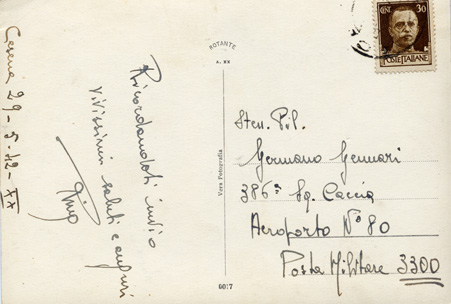 Cesena 29-5-42-XX
Ricordandoti invio
vivissimi saluti e auguri
ROTANTE
A. XX
Vera Fotografia
6017
CENT. 30
POSTE ITALIANE
Sten. Pil.
Germano Gennari
386ª Sq. Caccia
Aeroporto Nº 80
Posta Militare 3300